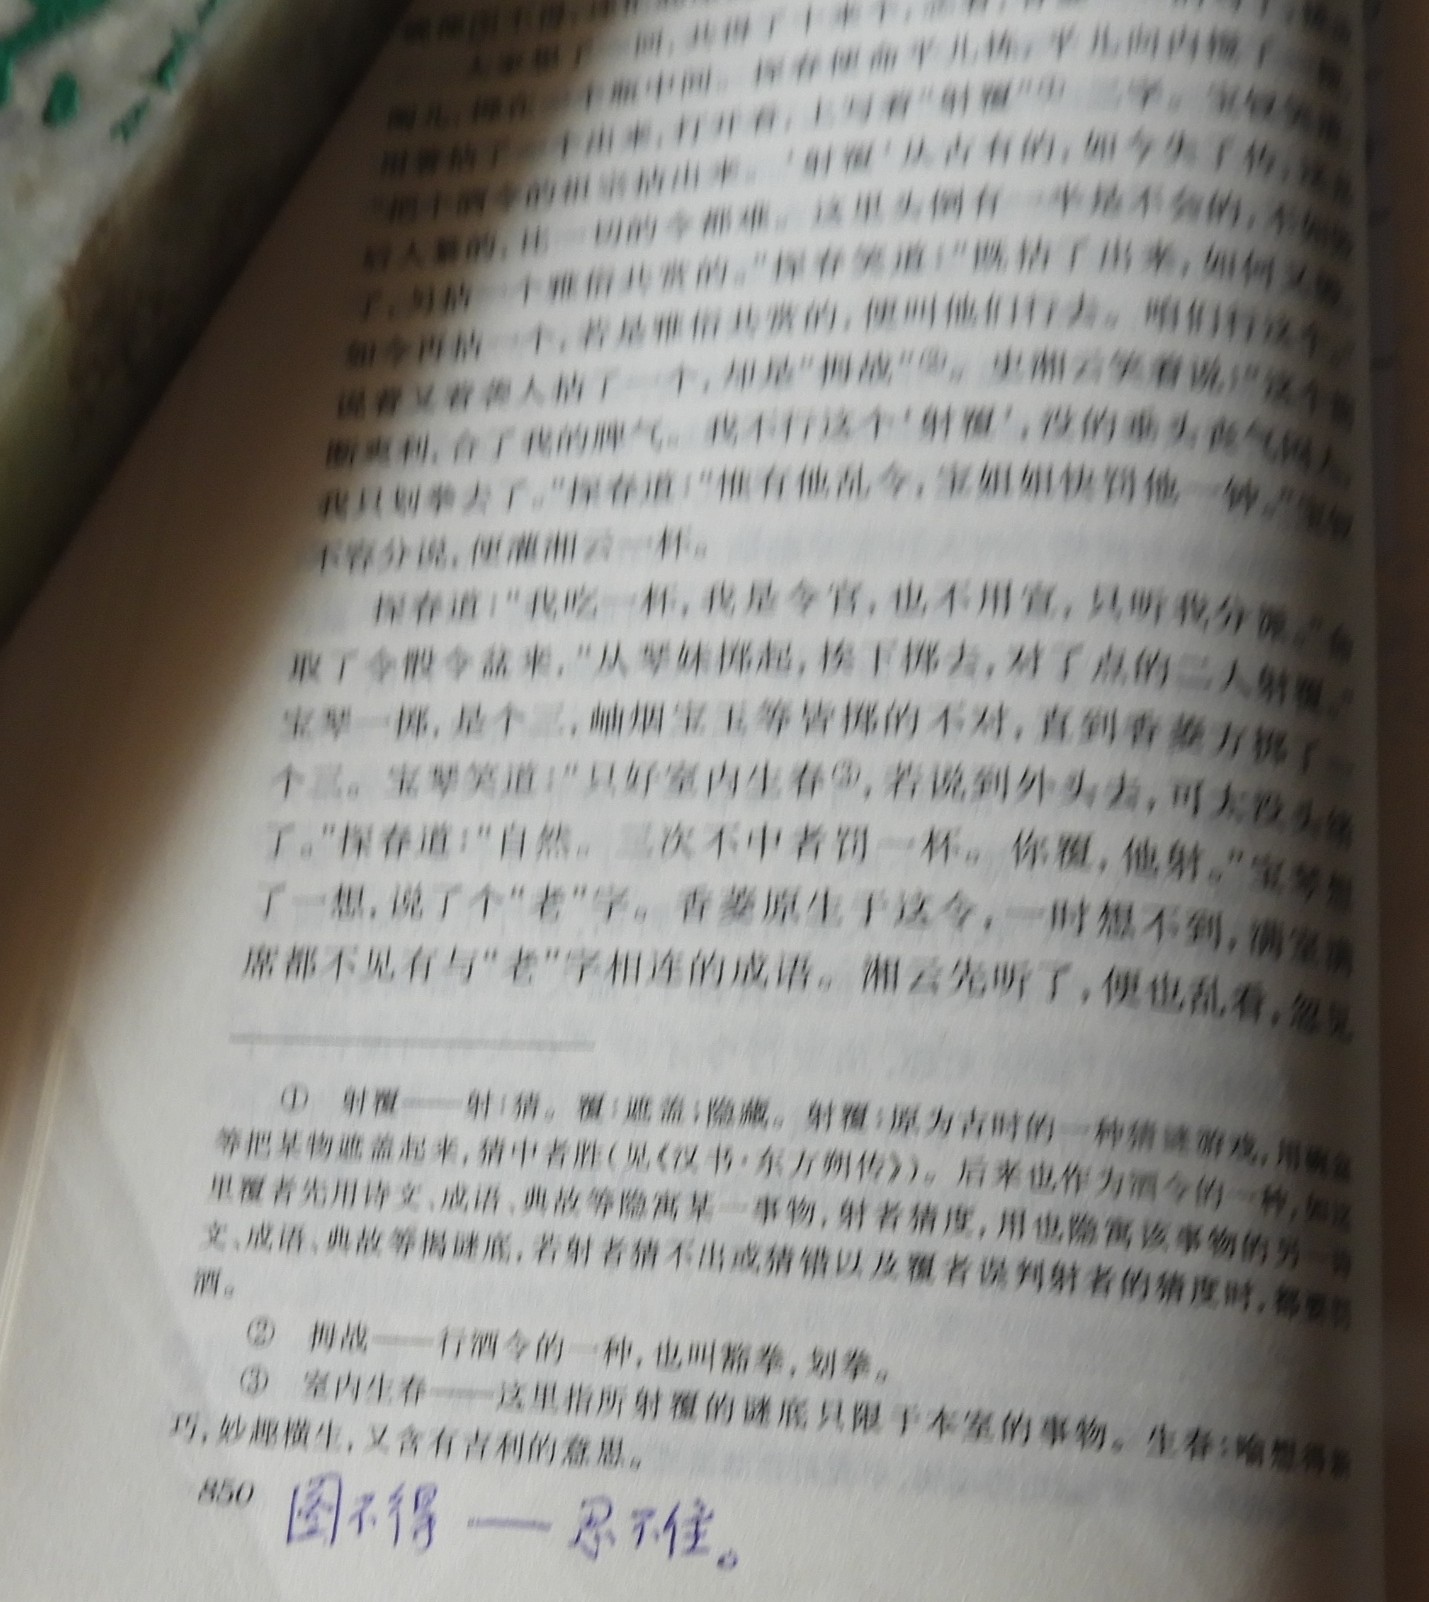 人家想了一回，共得了十来个，
一个瓶中间。探春便命平儿拣，平儿向内搅了一
出来，打开看，上写着“射覆”①二字。宝钗笑道
“把个酒令的祖宗拈出来。‘射覆’从古有的，如今失了传，这是
后人纂的，比一切的令都难。这里头倒有一半是不会的，不如毁
了，另拈一个雅俗共赏的。”探春笑道：“既拈了出来，如何又毁。
如今再拈一个，若是雅俗共赏的，便叫他们行去。咱们行这个。”
说着又着袭人拈了一个，却是“拇战”②。史湘云笑着说：“这个简
断爽利，合了我的脾气。我不行这个‘射覆’，没的垂头丧气闷人，
我只划拳去了。”探春道：“惟有他乱令，宝姐姐快罚他一钟。”宝钗
不容分说，便灌湘云一杯。
探春道：“我吃一杯，我是令官，也不用宣，只听我分派。”命
取了令骰令盆来，“从琴妹掷起，挨下掷去，对了点的二人射覆。”
宝琴一掷，是个三，岫烟宝玉等皆掷的不对，直到香菱方掷了一
个三。宝琴笑道：“只好室内生春③，若说到外头去，可太没头绪
了。”探春道：“自然。三次不中者罚一杯。你覆，他射。”宝琴想
了一想，说了个“老”字。香菱原生于这令，一时想不到，满室满
席都不见有与“老”字相连的成语。湘云先听了，便也乱看，忽见
① 射覆——射：猜。覆：遮盖；隐藏。射覆：原为古时的一种猜谜游戏，用碗盆
等把某物遮盖起来，猜中者胜（见《汉书·东方朔传》）。后来也作为酒令的一种，如这
里覆者先用诗文、成语、典故等隐寓某一事物，射者猜度，用也隐寓该事物的另一诗
文、成语、典故等揭谜底，若射者猜不出或猜错以及覆者误判射者的猜度时，都要罚
酒。
② 拇战——行酒令的一种，也叫豁拳，划拳。
③ 室内生春——这里指所射覆的谜底只限于本室的事物。生春：喻想得新
巧，妙趣横生，又含有吉利的意思。
850
图不得——忍不住。